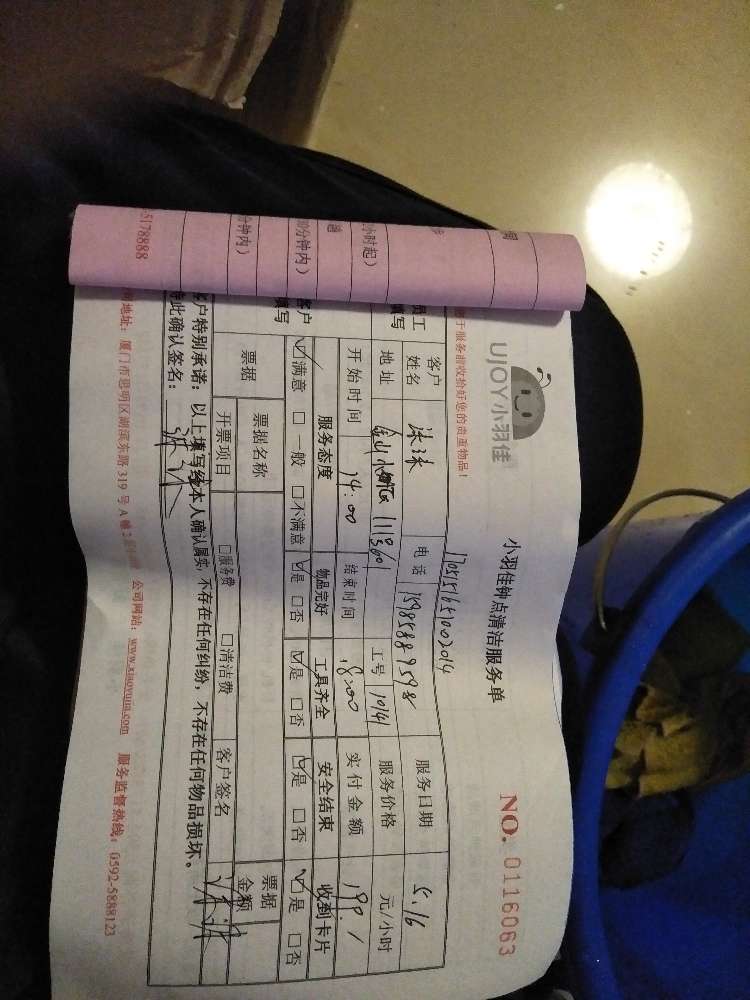 UJOY小羽佳
小羽佳钟点清洁服务单
NO. 0116063
于服务前收拾好您的贵重物品！
1705151651002014
客户姓名 电话 15985889598 服务日期 5.16
地址 110 560 工号 10141 服务价格 元/小时
开始时间 14:00 结束时间 18:00 实付金额 199.1
服务态度 物品完好 工具齐全 安全结束 收到卡片
☑满意 □一般 □不满意 ☑是 □否 ☑是 □否 ☑是 □否 ☑是 □否
票据 票据名称 票据金额
开票项目 □服务费 □清洁费 客户签名
客户特别承诺：以上填写经本人确认属实，不存在任何纠纷，不存在任何物品损坏。
特此确认签名：
地址：厦门市思明区湖滨东路319号A幢2 公司网站：www.xiaoyujia.com 服务监督热线：0592-5888123
员工填写
客户填写
小时起）
分钟内）
分钟内）
5178888